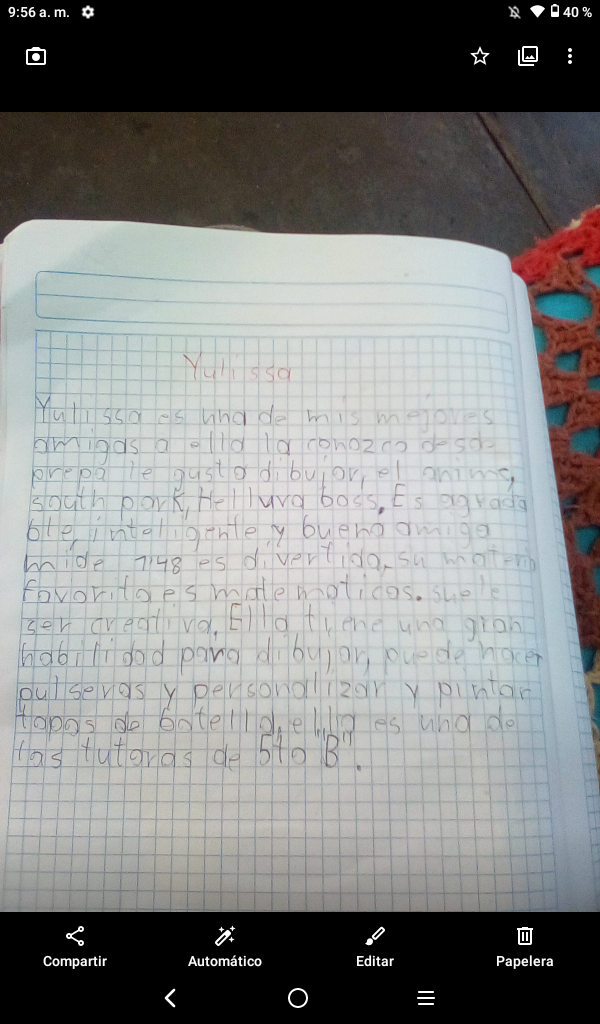 9:56 a. m.
40 %
Yulissa
Yulissa es una de mis mejores
amigas a ella la conozco desde
prepa le gusta dibujar, el anime,
south park, Helluva boss. Es agrada
ble, inteligente y buena amiga
mide 1'48 es divertida, su materia
favorita es matematicas. suele
ser creativa. Ella tiene una gran
habilidad para dibujar, puede hacer
pulseras y personalizar y pintar
tapas de botella, ella es una de
las tutoras de 5to "B".
Compartir
Automático
Editar
Papelera